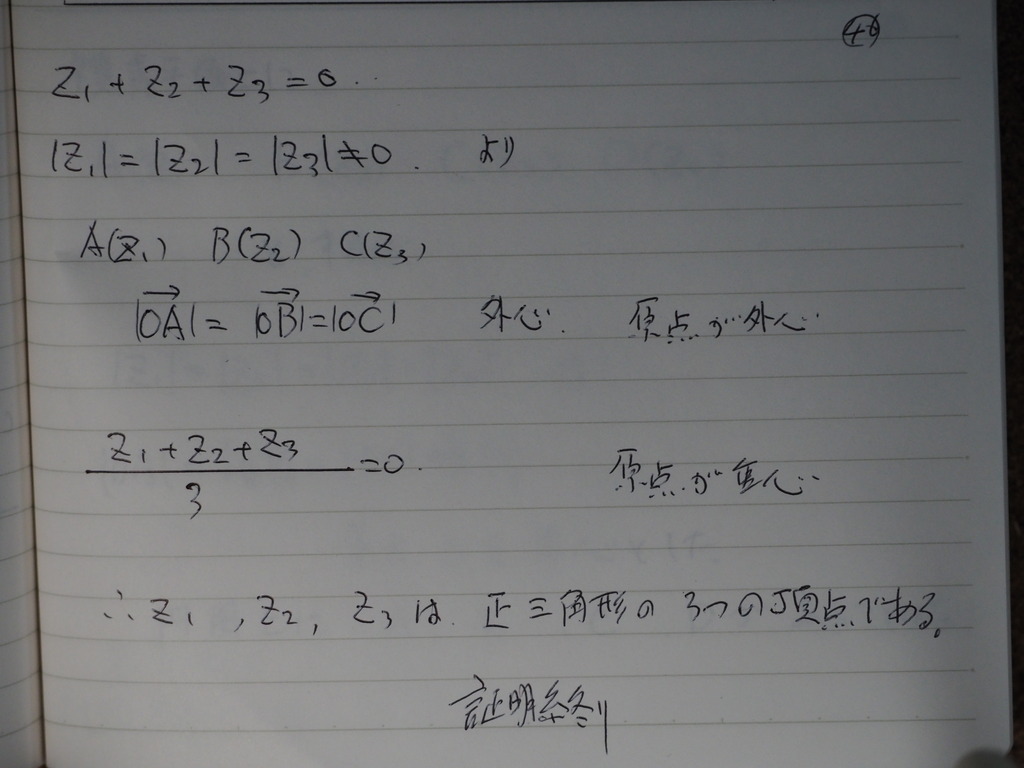 Z₁ + Z₂ + Z₃ = 0.
|Z₁| = |Z₂| = |Z₃| ≠ 0. より
A(Z₁) B(Z₂) C(Z₃)
|OA→| = |OB→| = |OC→| 外心. 原点が外心
(Z₁ + Z₂ + Z₃)/3 = 0. 原点が重心
∴ Z₁, Z₂, Z₃ は 正三角形の 3つの頂点である。
証明終り